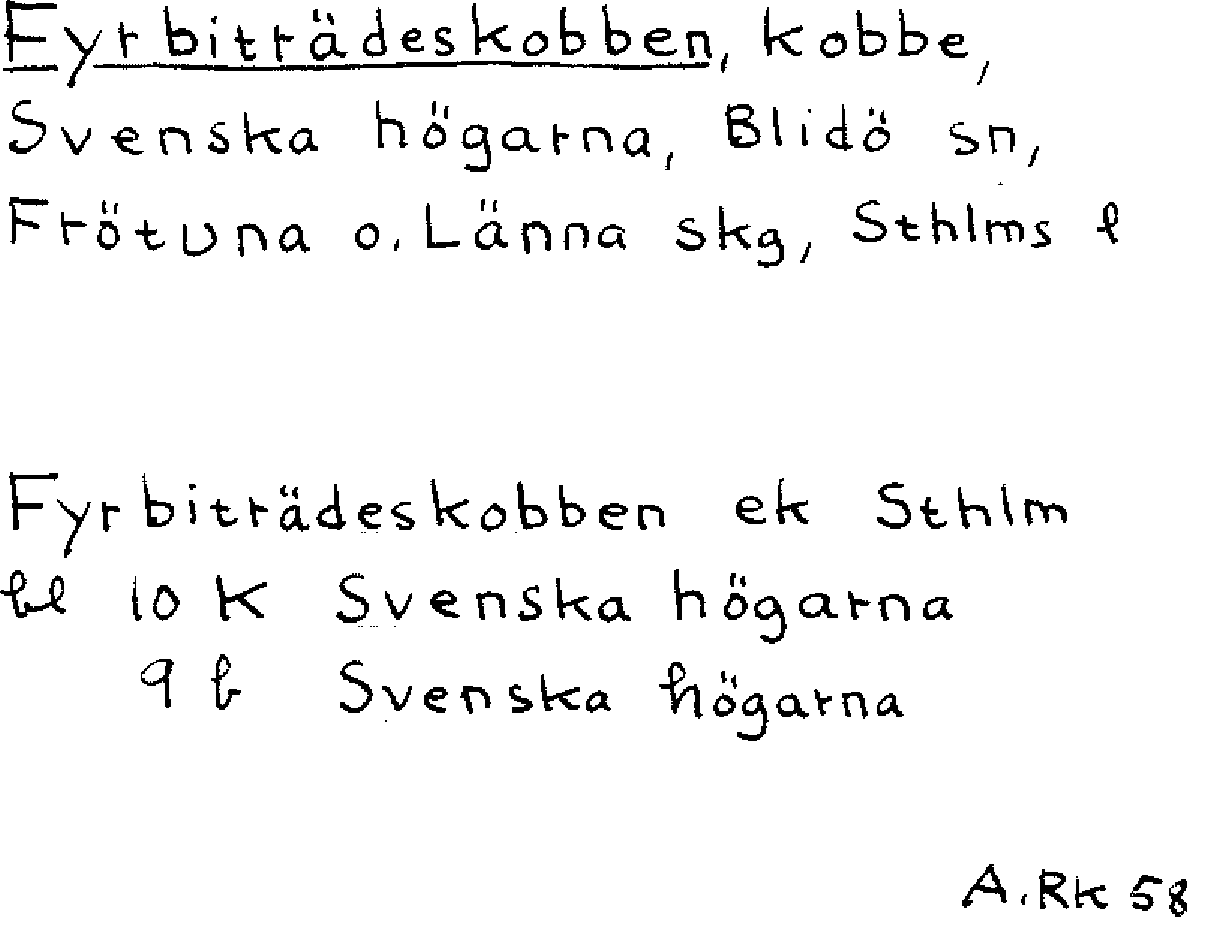 Fyrbiträdeskobben, kobbe,
Svenska högarna, Blidö sn,
Frötuna o. Länna skg, Sthlms l
Fyrbiträdeskobben ek Sthlm
bl 10 K Svenska högarna
9 b Svenska högarna
A.Rk 58